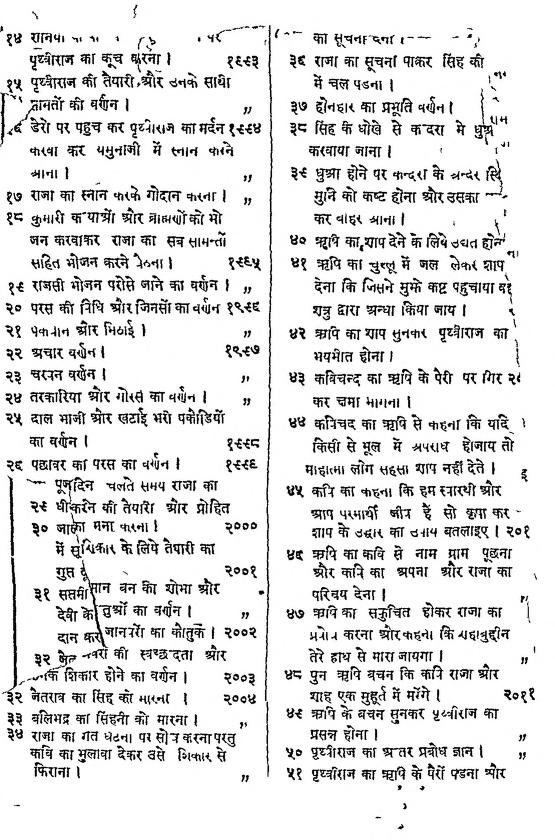 १४ रानियों पर
पृथ्वीराज का कूच करना । १९९३
१५ पृथ्वीराज की तैयारी और उनके साथी
सामतों की वर्णन । ,,
डेरों पर पहुच कर पृथ्वीराज का मर्दन १९९४
करवा कर यमुनाजी में स्नान करने
आना । ,,
१७ राजा का स्नान करके गोदान करना । ,,
१८ कुमारी कन्याओं और ब्राह्मणों को भो
जन करवाकर राजा का सब सामन्तों
सहित भोजन करने बैठना । १९९५
१९ राजसी भोजन परोसे जाने का वर्णन । ,,
२० परस की निधि और जिनसों का वर्णन १९९६
२१ पकवान और मिठाई । ,,
२२ अचार वर्णन । १९९७
२३ चरपन वर्णन । ,,
२४ तरकारिया और गोरस का वर्णन । ,,
२५ दाल भाजी और खटाई भरी पकौडियों
का वर्णन । १९९८
२६ पछावर का परस का वर्णन । १९९९
चलते समय राजा का
२९ की तैयारी और प्रोहित
३० मना करना । २०००
शिकार के लिये तैयारी का
२००१
३१ बन की शोभा और
देवी के तुओं का वर्णन । ,,
दान कर जानवरों का कौतुक । २००२
३२ की स्वच्छदता और
शिकार होने का वर्णन । २००३
३२ जेतराव का सिंह को मारना । २००४
३३ बलिभद्र का सिंहनी को मारना । ,,
३४ राजा का गत घटना पर सोच करना परतु
कवि का भुलावा देकर उसे शिकार से
फिराना । ,,
का सूचना देना ।
३६ राजा का सूचना पाकर सिंह की
में चल पडना ।
३७ होनहार का प्रभूति वर्णन ।
३८ सिंह के धोखे से कन्दरा में धुआं
करवाया जाना ।
३९ धुआ होने पर कन्दरा के अन्दर
मुनि को कष्ट होना और उसका
कर बाहर आना ।
४० ऋषि का शाप देने के लिये उद्यत होन
४१ ऋषि का चुल्लू में जल लेकर शाप
देना कि जिसने मुझे कष्ट पहुचाया वह
शत्रु द्वारा अन्धा किया जाय ।
४२ ऋषि का शाप सुनकर पृथ्वीराज का
भयभीत होना ।
४३ कविचन्द का ऋषि के पैरों पर गिर
कर क्षमा मागना ।
४४ कविचद का ऋषि से कहना कि यदि
किसी से भूल में अपराध होजाय तो
माहात्मा लोग सहसा शाप नहीं देते ।
४५ कवि का कहना कि हम स्वारथी और
आप परमार्थी जीव हैं सो कृपा कर
शाप के उद्धार का उपाय बतलाइए । २०१
४६ ऋषि का कवि से नाम ग्राम पूछना
और कवि का अपना और राजा का
परिचय देना । ,,
४७ ऋषि का सकुचित होकर राजा का
प्रबोध करना और कहना कि शहाबुद्दीन
तेरे हाथ से मारा जायगा । ,,
४८ पुन ऋषि बचन कि कवि राजा और
शाह एक मुहूर्त में मरेंगे । २०११
४९ ऋषि के बचन सुनकर पृथ्वीराज का
प्रसन्न होना । ,,
५० पृथ्वीराज का अन्तर प्रबोध ज्ञान । ,,
५१ पृथ्वीराज का ऋषि के पैरों पडना और